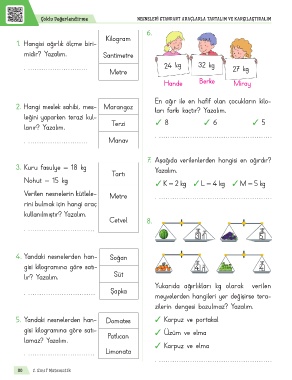 Çokta Değerlendirme
NESNELERİ STANDART ARAÇLARLA TARTALIM VE KARŞILAŞTIRALIM
1. Hangisi ağırlık ölçme biri-
midir? Yazalım.
Kilogram
Santimetre
Metre
2. Hangi meslek sahibi, mes-
leğini yaparken terazi kul-
lanır? Yazalım.
Marangoz
Terzi
Manav
3. Kuru fasulye = 18 kg
Nohut = 15 kg
Verilen nesnelerin kütlele-
rini bulmak için hangi araç
kullanılmıştır? Yazalım.
Tartı
Metre
Cetvel
4. Yandaki nesnelerden han-
gisi kilogramına göre satı-
lır? Yazalım.
Soğan
Süt
Şapka
5. Yandaki nesnelerden han-
gisi kilogramına göre satı-
lamaz? Yazalım.
Domates
Patlıcan
Limonata
6.
24 kg
32 kg
27 kg
Hande
Berke
Miray
En ağır ile en hafif olan çocukların kilo-
ları farkı kaçtır? Yazalım.
✓ 8 ✓ 6 ✓ 5
7. Aşağıda verilenlerden hangisi en ağırdır?
Yazalım.
✓ K = 2 kg ✓ L = 4 kg ✓ M = 5 kg
8.
Yukarıda ağırlıkları kg olarak verilen
meyvelerden hangileri yer değişirse tera-
zilerin dengesi bozulmaz? Yazalım.
✓ Karpuz ve portakal
✓ Üzüm ve elma
✓ Karpuz ve elma
80
2. Sınıf Matematik